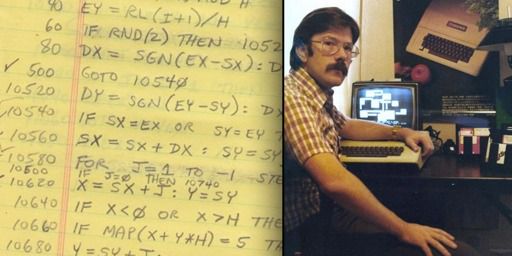 40 EY = RL(I+1)/H
60 IF RND(2) THEN 1052
80 DX = SGN(EX-SX): D
500 GOTO 10540
10520 DY = SGN(EY-SY): D
10540 IF SX=EX OR SY=EY
10560 SX = SX + DX : SY = SY
10580 FOR J=1 TO -1 STE
10600 IF J=0 THEN 10740
10620 X = SX + J : Y = SY
10640 IF X<0 OR X>H THE
10660 IF MAP(X+Y*H) = 5 TH
10680 Y = SY + J :